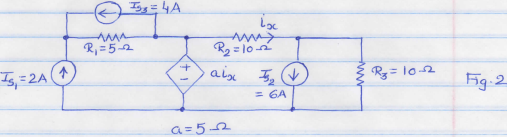 I_S3 = 4A
R₁ = 5 Ω
i_x
R₂ = 10 Ω
I_S1 = 2A
+
-
a i_x
I_S2
= 6A
R₃ = 10 Ω
Fig. 2
a = 5 Ω